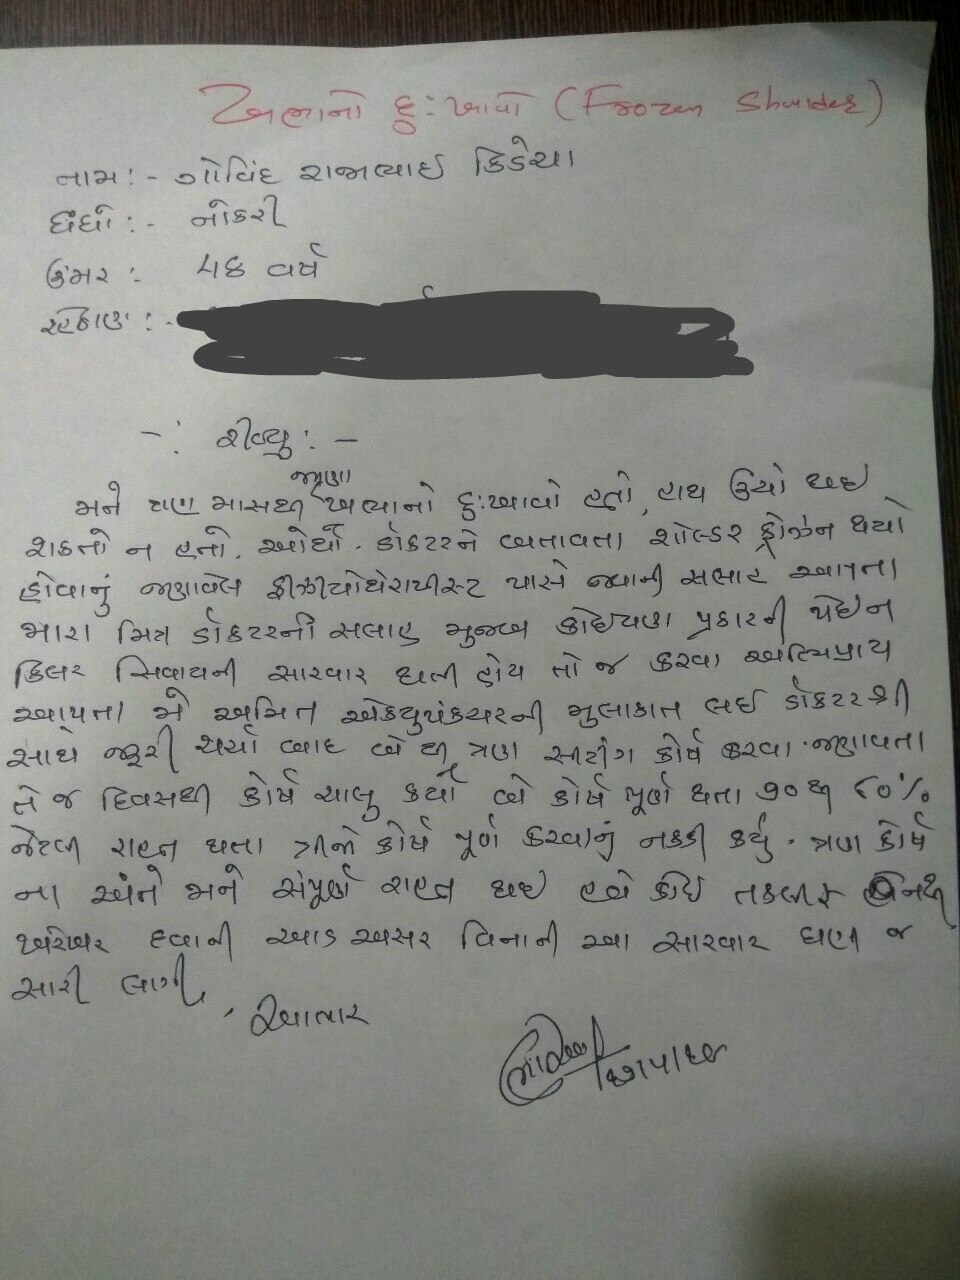 ખભાનો દુઃખાવો (Frozen Shoulder)
નામ :- ગોવિંદ રાજાભાઈ કિડેચા
ધંધો :- નોકરી
ઉંમર :- ૫૪ વર્ષ
રહેઠાણ :-
-: રીવ્યુ :-
જમણા
મને ત્રણ માસથી ખભાનો દુઃખાવો હતો, હાથ ઉંચો થઈ
શકતો ન હતો. ઓર્થો. ડોકટરને બતાવતા શોલ્ડર ફ્રોઝન થયો
હોવાનું જણાવેલ ફીઝીયોથેરાપીસ્ટ પાસે જવાની સલાહ આપતા
મારા મિત્ર ડોકટરની સલાહ મુજબ કોઈપણ પ્રકારની પેઈન
કિલર સિવાયની સારવાર થતી હોય તો જ કરવા અભિપ્રાય
આપતા મે અમિત એક્યુપંકચરની મુલાકાત લઈ ડોકટરશ્રી
સાથે જરૂરી ચર્ચા બાદ બે થી ત્રણ સીટીંગ કોર્ષ કરવા જણાવતા
તે જ દિવસથી કોર્ષ ચાલુ કર્યો બે કોર્ષ પૂર્ણ થતા ૭૦ થી ૮૦%
જેટલી રાહત થતા ત્રીજો કોર્ષ પૂર્ણ કરવાનું નકકી કર્યુ. ત્રણ કોર્ષ
ના અંતે મને સંપૂર્ણ રાહત થઈ હવે કોઈ તકલીફ નથી
ખરેખર દવાની આડ અસર વિનાની આ સારવાર ઘણી જ
સારી લાગી.
આભાર